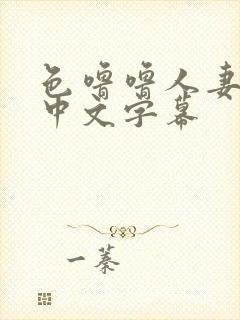 色噜噜人妻
中文字幕
一蓁